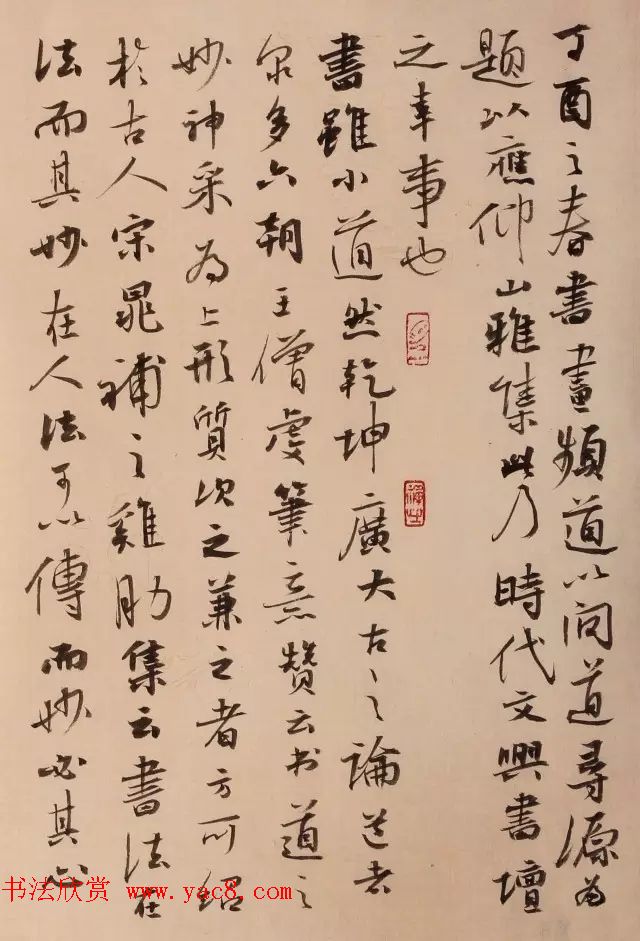 丁酉之春書畫頻道以问道尋源為
題以應仰山雅集此乃時代文興書壇
之幸事也
書雖小道然乾坤廣大古之論道者
衆多六朝王僧虔筆意赞云书道之
妙神采為上形質次之兼之者方可紹
於古人宋晁補之雞肋集云書法在
法而其妙在人法可以傳而妙必其心
书法欣赏 www.yac8.com